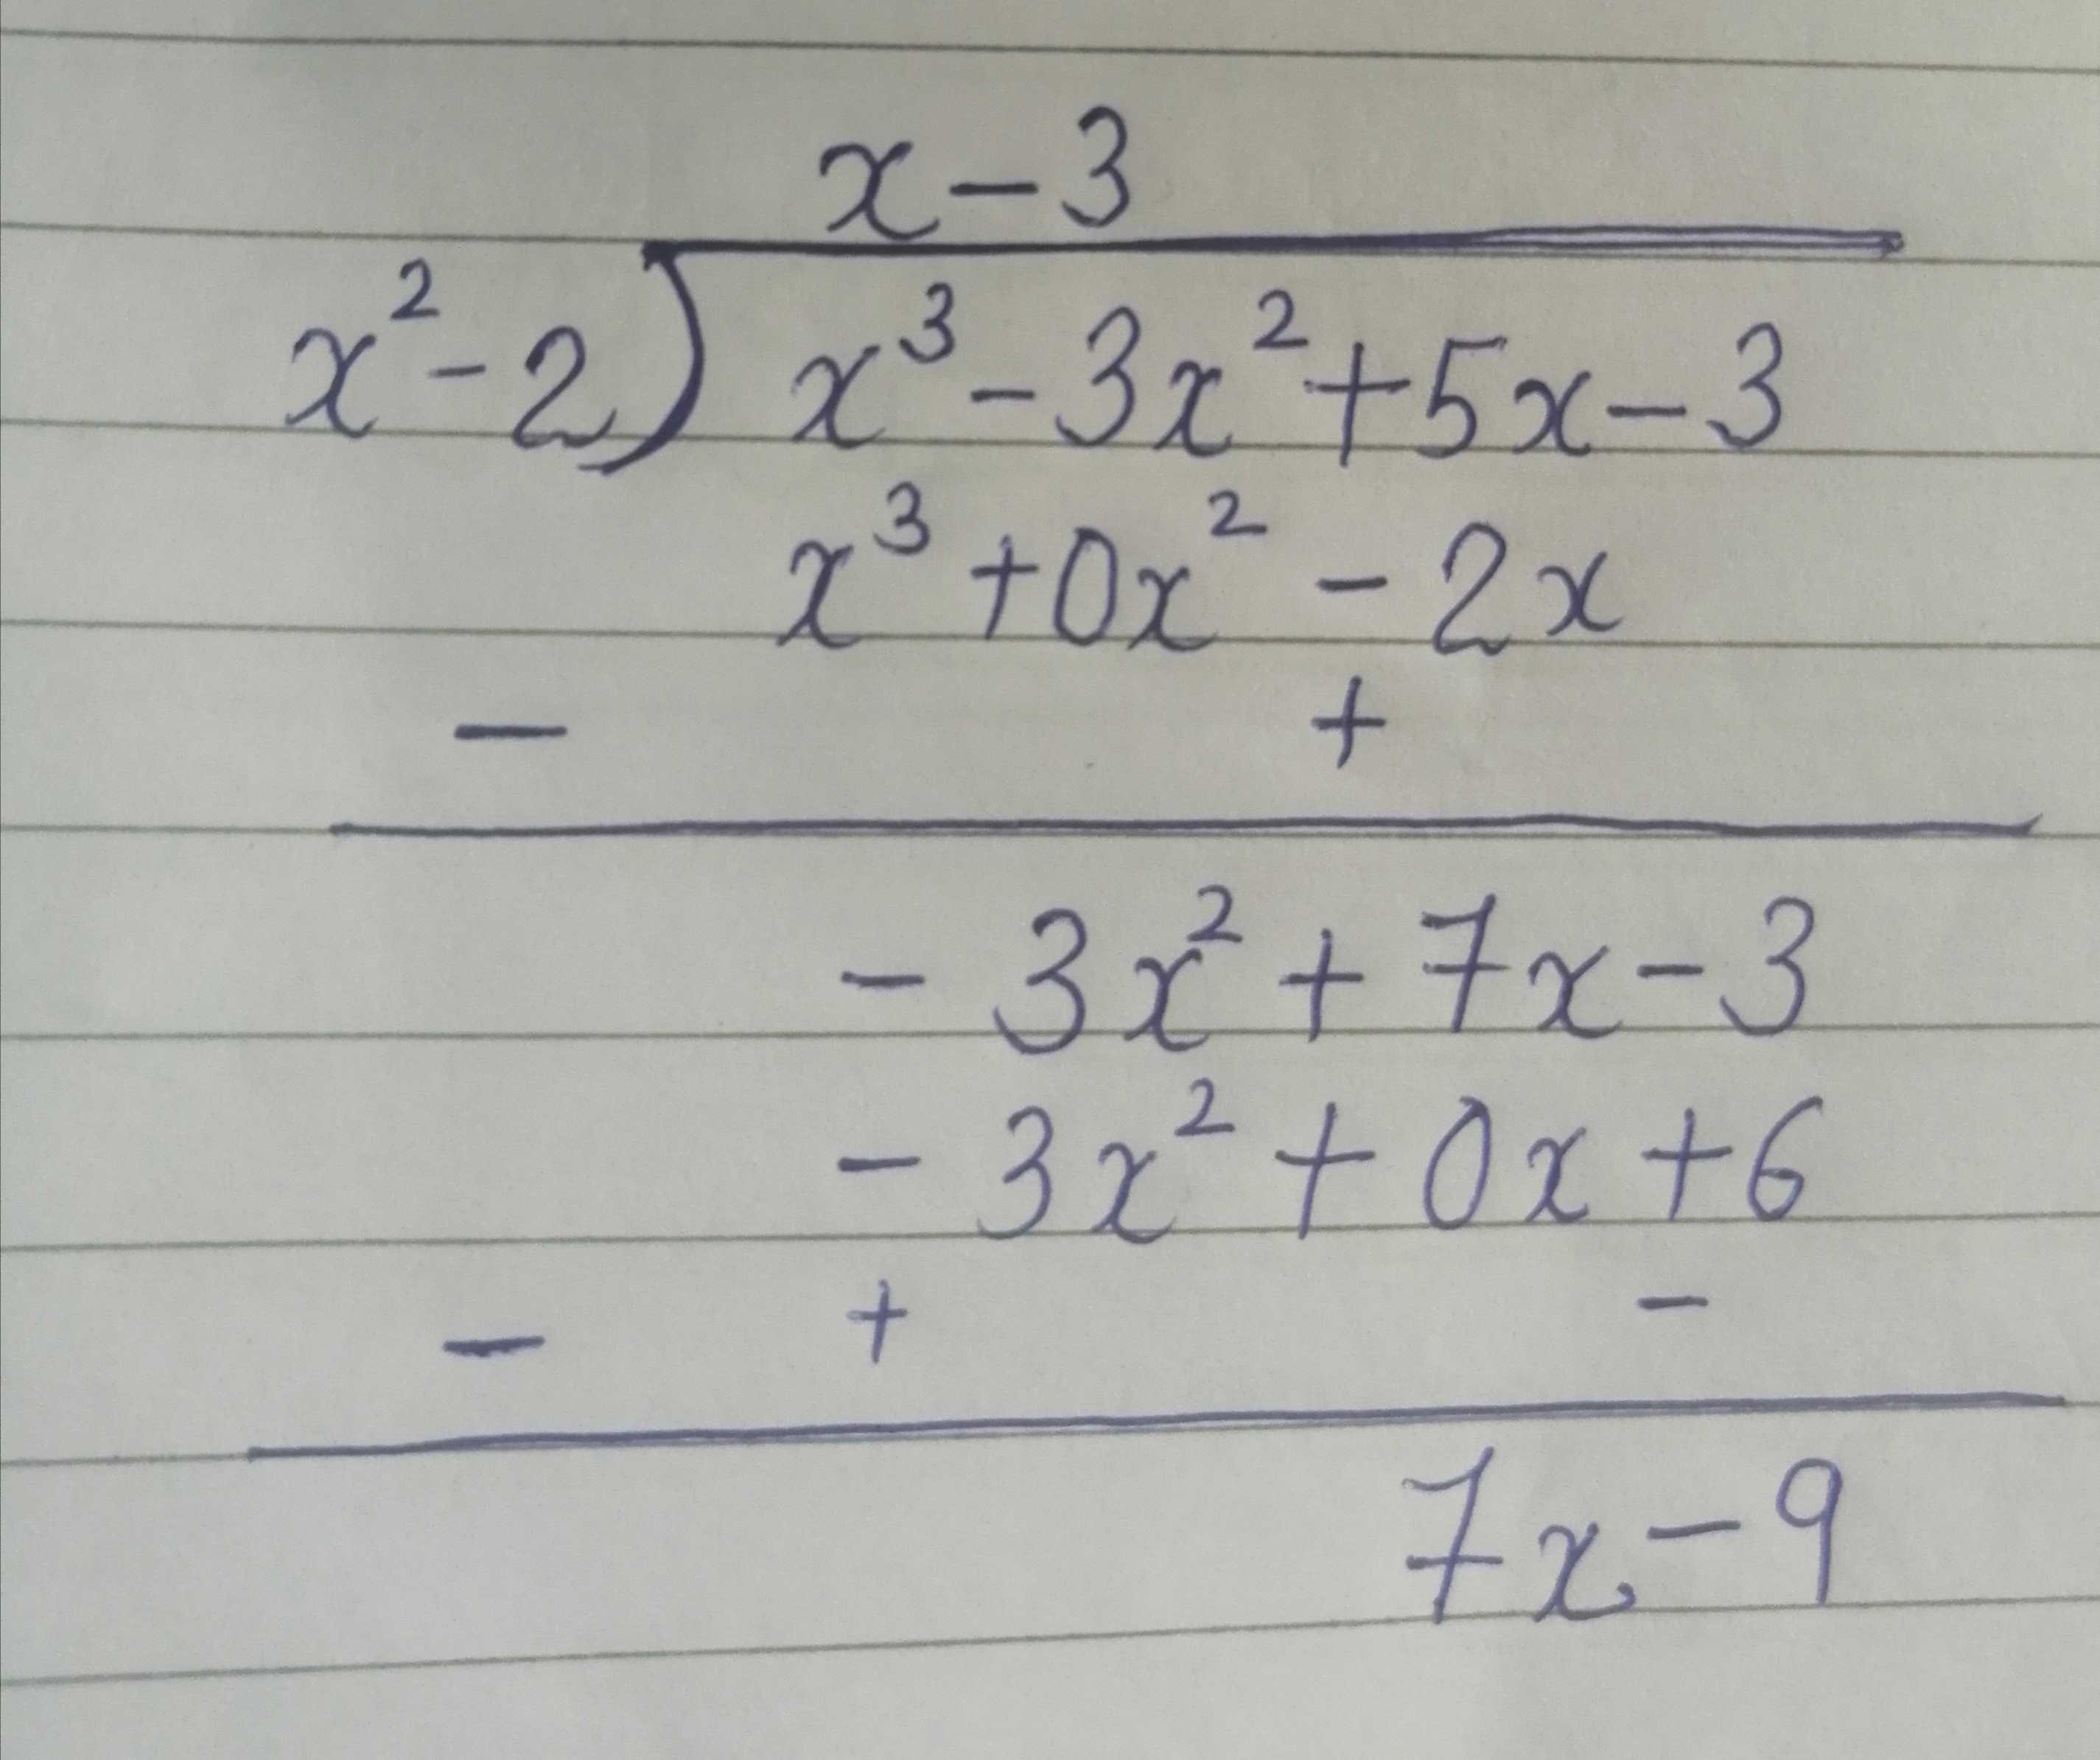 x-3
x²-2) x³-3x²+5x-3
x³+0x²-2x
- +
-3x²+7x-3
-3x²+0x+6
- + -
7x-9